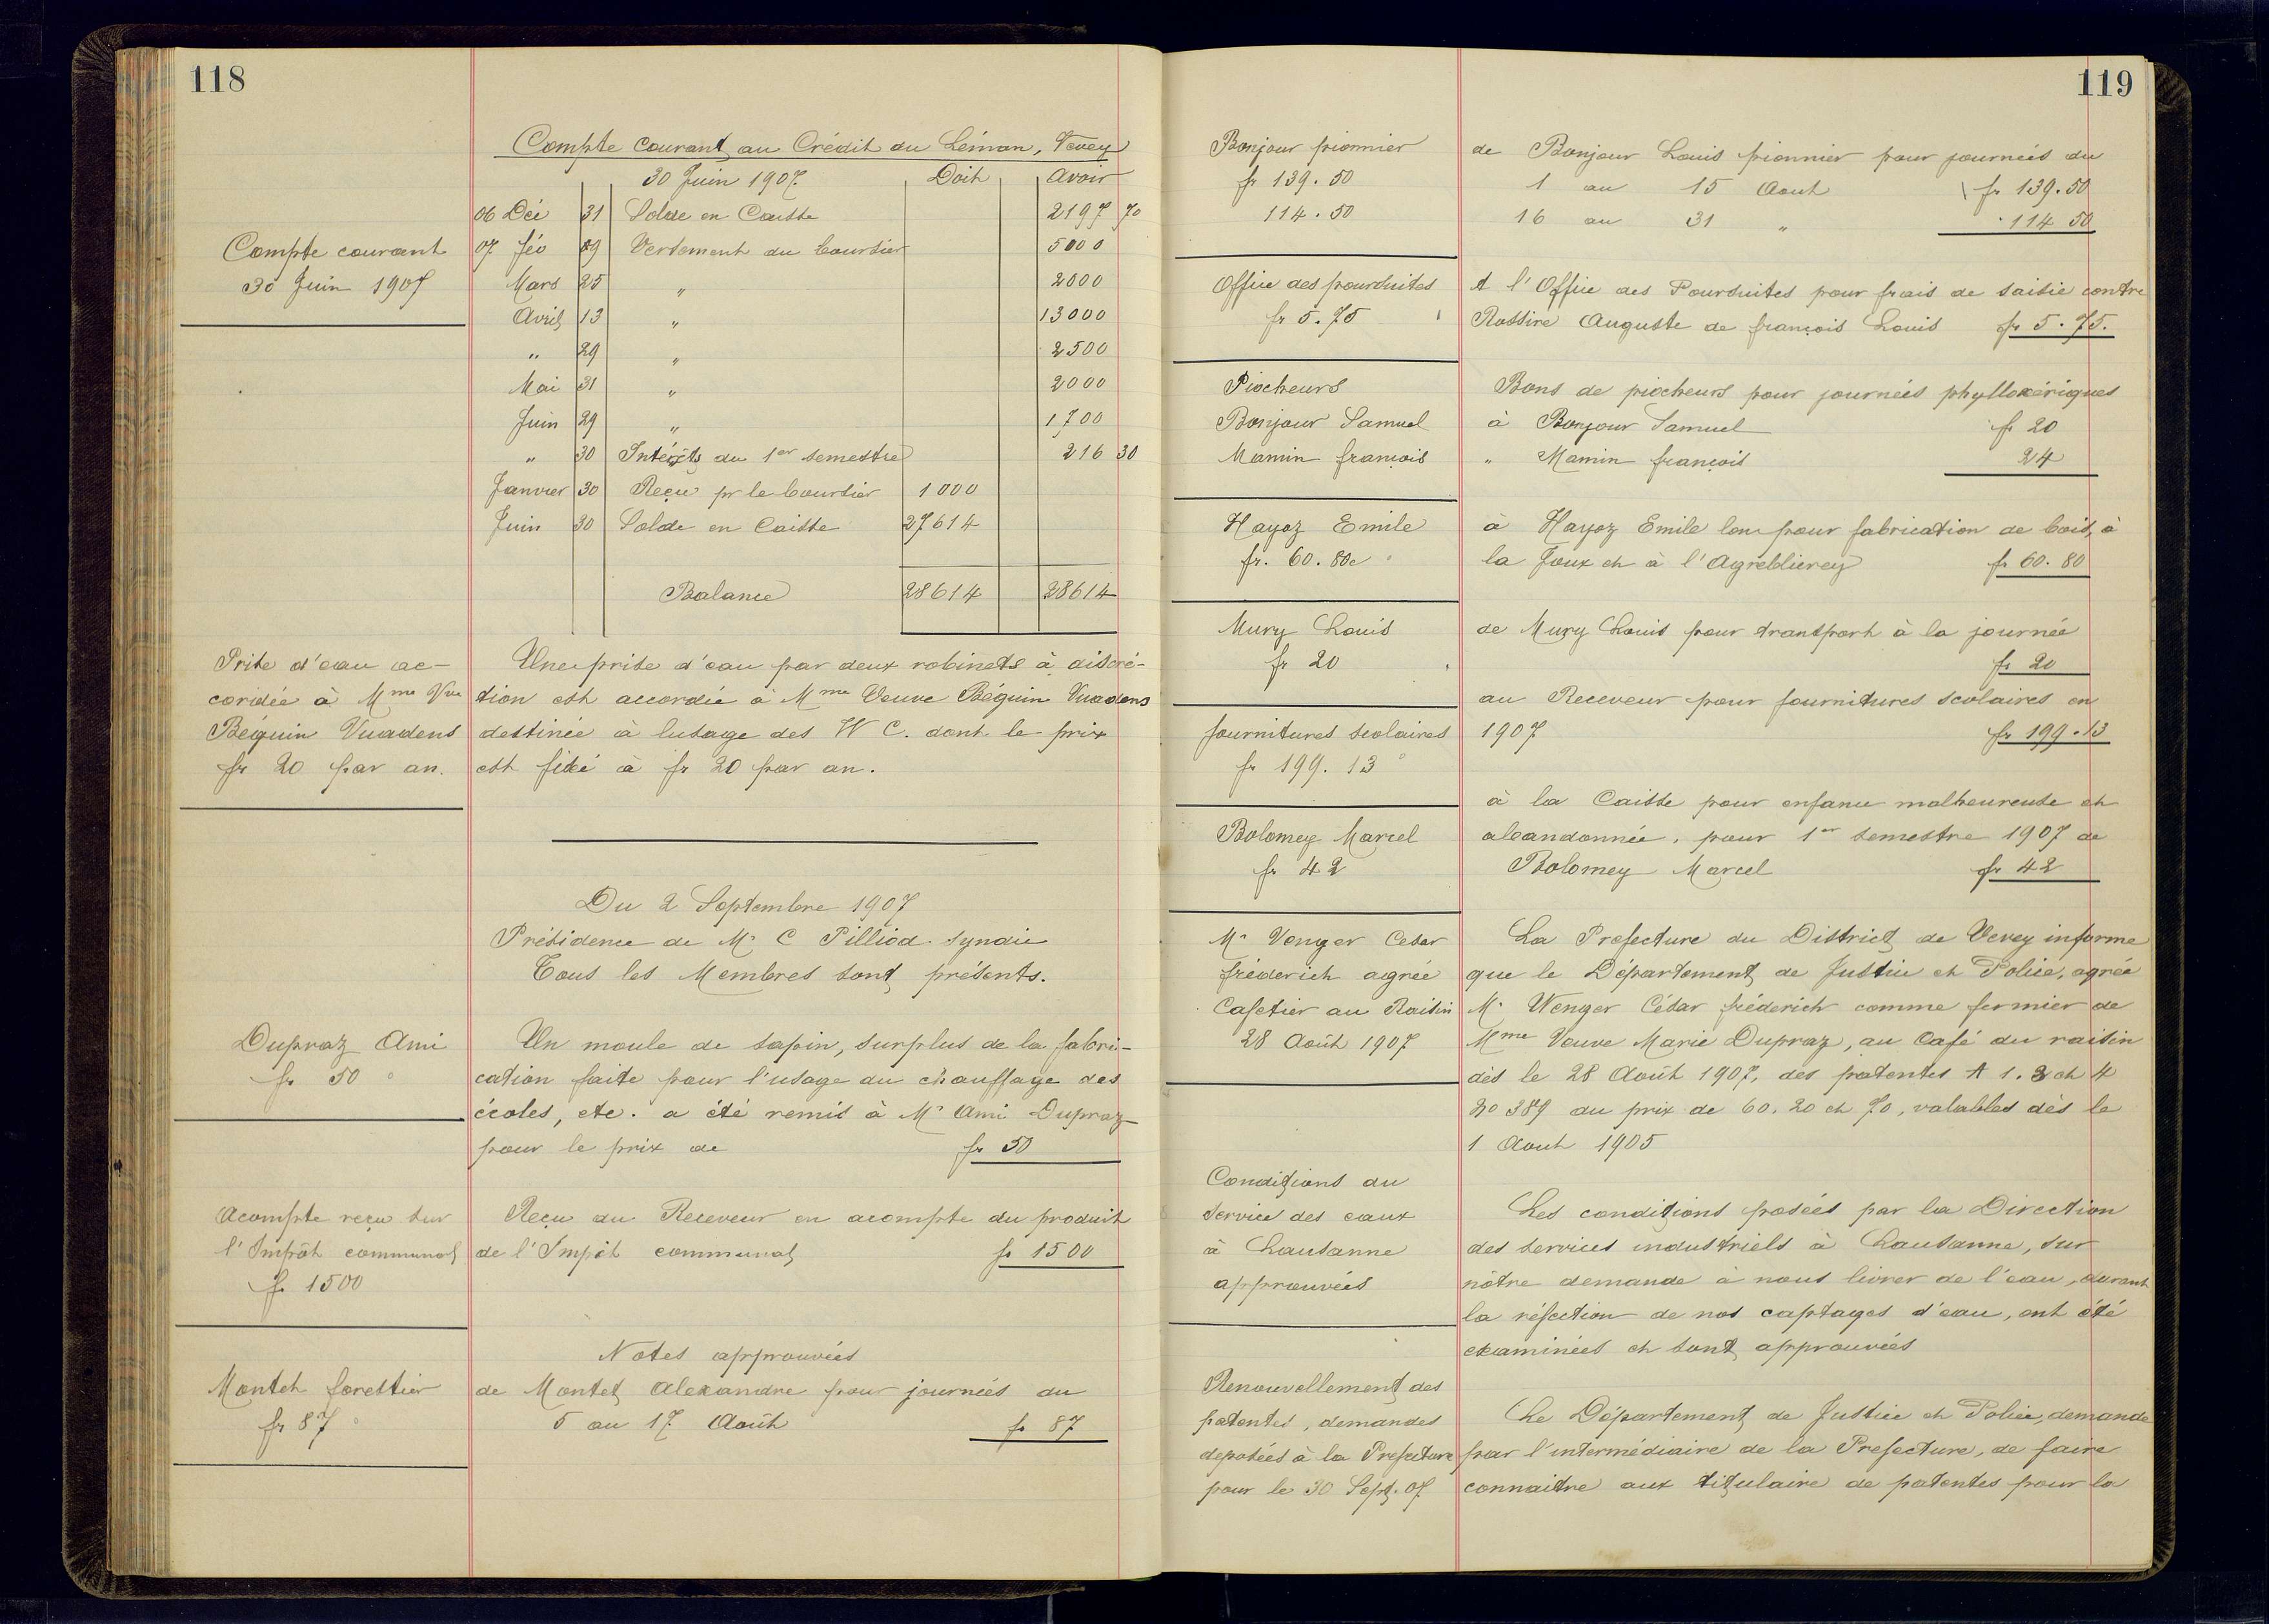 118
Compte courant au Crédit du Léman, Vevey
30 Juin 1907. Doit Avoir
06 Déc 31 Solde en Caisse 2197 70
07 fév 09 Versement du boursier 5000
Mars 25 " 2000
Avril 13 " 13000
" 29 " 2500
Mai 31 " 2000
Juin 29 " 1700
" 30 Intérêts du 1er semestre 216 30
Janvier 30 Reçu pr le boursier 1000
Juin 30 Solde en Caisse 27614
Balance 28614 28614
Compte courant
30 Juin 1907
Prise d'eau ac-
cordée à Mme Vve
Béguin Vuadens
fr 20 par an.
Une prise d'eau par deux robinets à discré-
tion est accordée à Mme Veuve Béguin Vuadens
destinée à lusage des W C. dont le prix
est fixé à fr 20 par an.
Du 2 Septembre 1907
Présidence de Mr C Pilliod syndic
Tous les Membres sont présents.
Dupraz Ami
fr 50
Un moule de sapin, surplus de la fabri-
cation faite pour l'usage du chauffage des
écoles, etc. a été remis à Mr Ami Dupraz
pour le prix de fr 50
Acompte reçu sur
l'Impôt communal
fr 1500
Reçu du Receveur en acompte du produit
de l'Impôt communal fr 1500
Notes approuvées
Montet forestier
fr 87
de Montet Alexandre pour journées du
5 au 17 Août fr 87
119
Bonjour pionnier
fr 139.50
114.50
de Bonjour Louis pionnier pour journées du
1 au 15 Aout fr 139.50
16 au 31 " 114 50
Office des poursuites
fr 5.75
A l'Office des Poursuites pour frais de saisie contre
Rossire Auguste de françois Louis fr 5.75.
Piocheurs
Bonjour Samuel
Mamin françois
Bons de piocheurs pour journées phylloxériques
à Bonjour Samuel fr 20
" Mamin françois 24
Hayoz Emile
fr. 60.80c
à Hayoz Emile pour fabrication de bois, à
la Joux et à l'Agreblierey fr 60.80
Mury Louis
fr 20
de Mury Louis pour transport à la journée
fr 20
fournitures scolaires
fr 199.13
au Receveur pour fournitures scolaires en
1907 fr 199.13
Bolomey Marcel
fr 42
à la Caisse pour enfance malheureuse et
abandonnée, pour 1er semestre 1907 de
Bolomey Marcel fr 42
Mr Venger Cesar
fréderich agrée
Cafetier au Raisin
28 Août 1907
La Prefecture du District de Vevey informe
que le Département de Justice et Police, agrée
Mr Wenger César fréderich comme fermier de
Mme Veuve Marie Dupraz, au Café du raisin
dès le 28 Août 1907, des patentes A 1. 3 et 4
No 389 du prix de 60. 20 et 70, valables dès le
1 Aout 1905
Conditions du
service des eaux
à Lausanne
approuvées
Les conditions posées par la Direction
des services industriels à Lausanne, sur
nôtre demande à nous livrer de l'eau, durant
la réfection de nos captages d'eau, ont été
examinées et sont approuvées
Renouvellement des
patentes, demandes
deposées à la Prefecture
pour le 30 Sept. 07
Le Département de Justice et Police, demande
par l'intermédiaire de la Prefecture, de faire
connaitre aux titulaire de patentes pour la